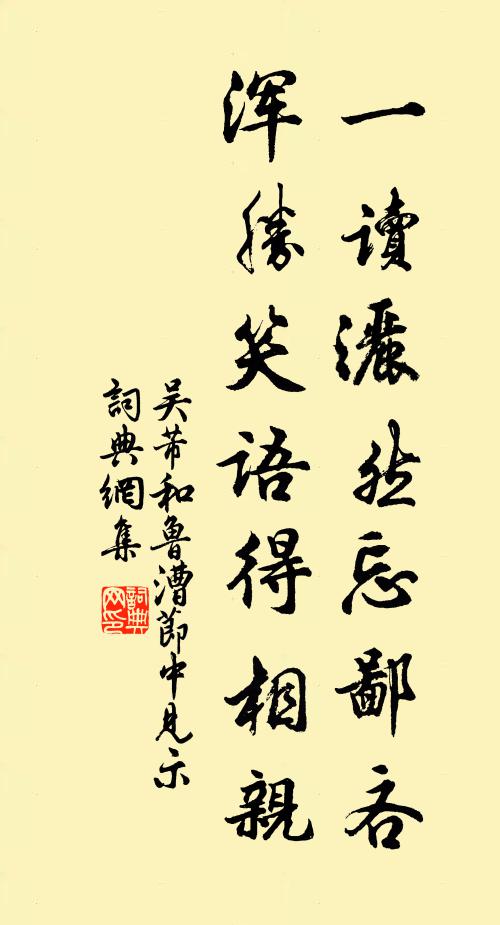 一讀灑然忘鄙吝
渾勝笑語得相親
吴芾和魯漕節中見示
詞典網集
詞典网印